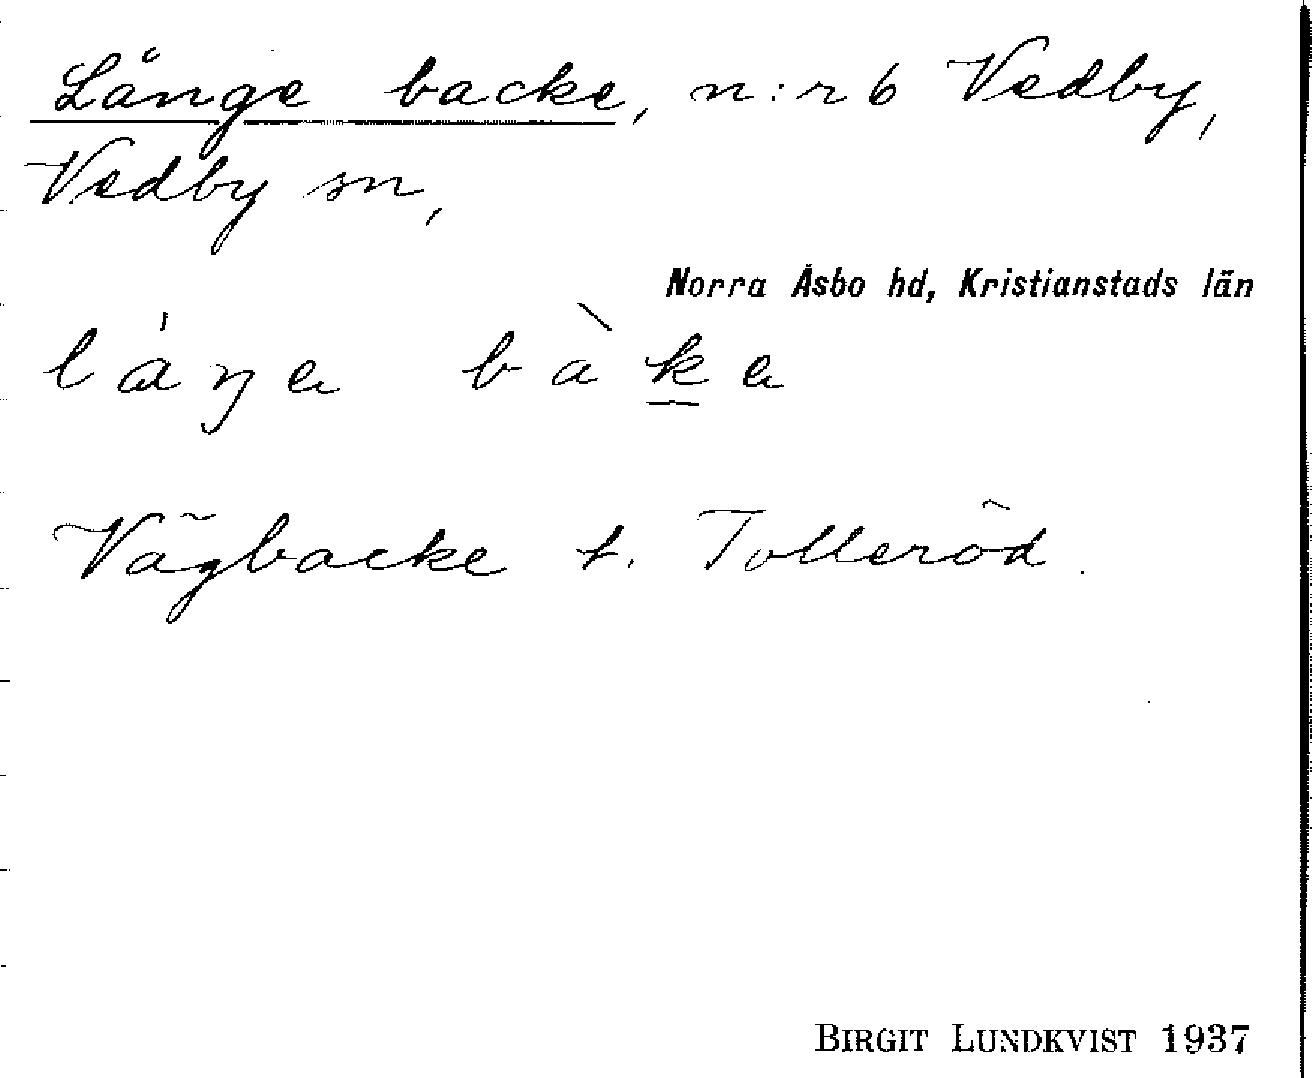 Långe backe, n:r 6 Vedby,
Vedby sn,
Norra Åsbo hd, Kristianstads län
láŋa bàka
Vägbacke t. Tolleröd.
BIRGIT LUNDKVIST 1937